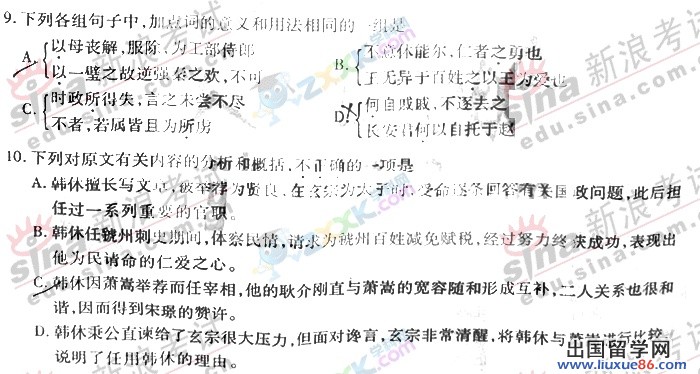 9.下列各组句子中,加点词的意义和用法相同的一组是
A. 以母丧解,服除,为工部侍郎
以一璧之故逆强秦之欢,不可
B. 不意休能尔,仁者之勇也
王无异于百姓之以王为爱也
C. 时政所得失,言之未尝不尽
不者,若属皆且为所虏
D. 何自戚戚,不逐去之
长安君何以自托于赵
10.下列对原文有关内容的分析和概括,不正确的一项是
A. 韩休擅长写文章,被举荐为贤良。在玄宗为太子时,受命逐条回答有关国政问题,此后担
任过一系列重要的官职。
B. 韩休任虢州刺史期间,体察民情,请求为虢州百姓减免赋税,经过努力终获成功,表现出
他为民请命的仁爱之心。
C. 韩休因萧嵩举荐而任宰相,他的耿介刚直与萧嵩的宽容随和形成互补,二人关系也很和
谐,因而得到宋璟的赞许。
D. 韩休秉公直谏给了玄宗很大压力,但面对谗言,玄宗非常清醒,将韩休与萧嵩进行比较,
说明了任用韩休的理由。
新浪考试
sina
edu.sina.com.cn
ZXXK.COM
学科网
出国留学网
www.liuxue86.com